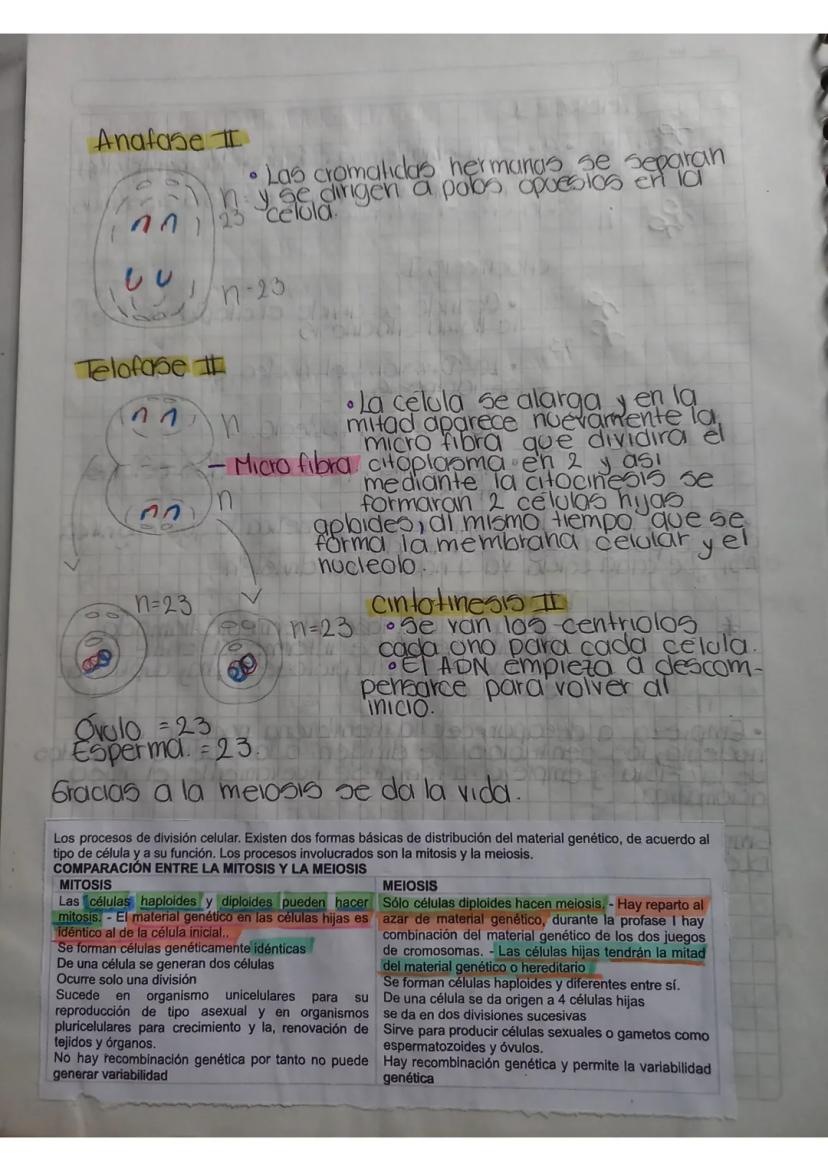 Anafase II
• Las cromatidas hermanas se separan
n y se dirigen a polos opuestos en la
23 celula.
n-23
Telofase II
n
• La celula se alarga y en la
mitad aparece nuevamente la
micro fibra que dividira el
- Micro fibra citoplasma en 2 y asi
mediante la citocinesis se
n
formaran 2 celulas hijas
aploides, al mismo tiempo que se
forma la membrana celular y el
nucleolo.
n=23
n=23
cintotinesis II
• se van los centriolos
cada uno para cada celula.
• El ADN empieza a descom-
pensarce para volver al
inicio.
Óvulo = 23
Esperma. = 23.
Gracias a la meiosis se da la vida.
Los procesos de división celular. Existen dos formas básicas de distribución del material genético, de acuerdo al
tipo de célula y a su función. Los procesos involucrados son la mitosis y la meiosis.
COMPARACIÓN ENTRE LA MITOSIS Y LA MEIOSIS
MITOSIS
Las células haploides y diploides pueden hacer
mitosis. - El material genético en las células hijas es
idéntico al de la célula inicial..
Se forman células genéticamente idénticas
De una célula se generan dos células
Ocurre solo una división
Sucede en organismo unicelulares para su
reproducción de tipo asexual y en organismos
pluricelulares para crecimiento y la, renovación de
tejidos y órganos.
No hay recombinación genética por tanto no puede
generar variabilidad
MEIOSIS
Sólo células diploides hacen meiosis. - Hay reparto al
azar de material genético, durante la profase I hay
combinación del material genético de los dos juegos
de cromosomas. - Las células hijas tendrán la mitad
del material genético o hereditario
Se forman células haploides y diferentes entre sí.
De una célula se da origen a 4 células hijas
se da en dos divisiones sucesivas
Sirve para producir células sexuales o gametos como
espermatozoides y óvulos.
Hay recombinación genética y permite la variabilidad
genética